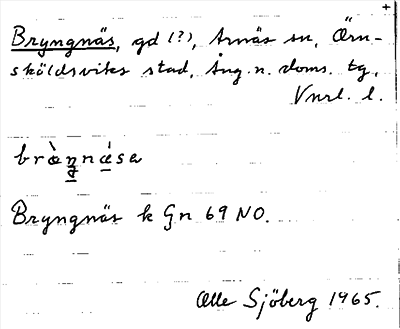 Bryngnäs, gd (?), Arnäs sn, Örn-
sköldsviks stad, Ång. n. doms. tg,
Vnrl. l.
Bryngnäs k Gn 69 NO.
Olle Sjöberg 1965.